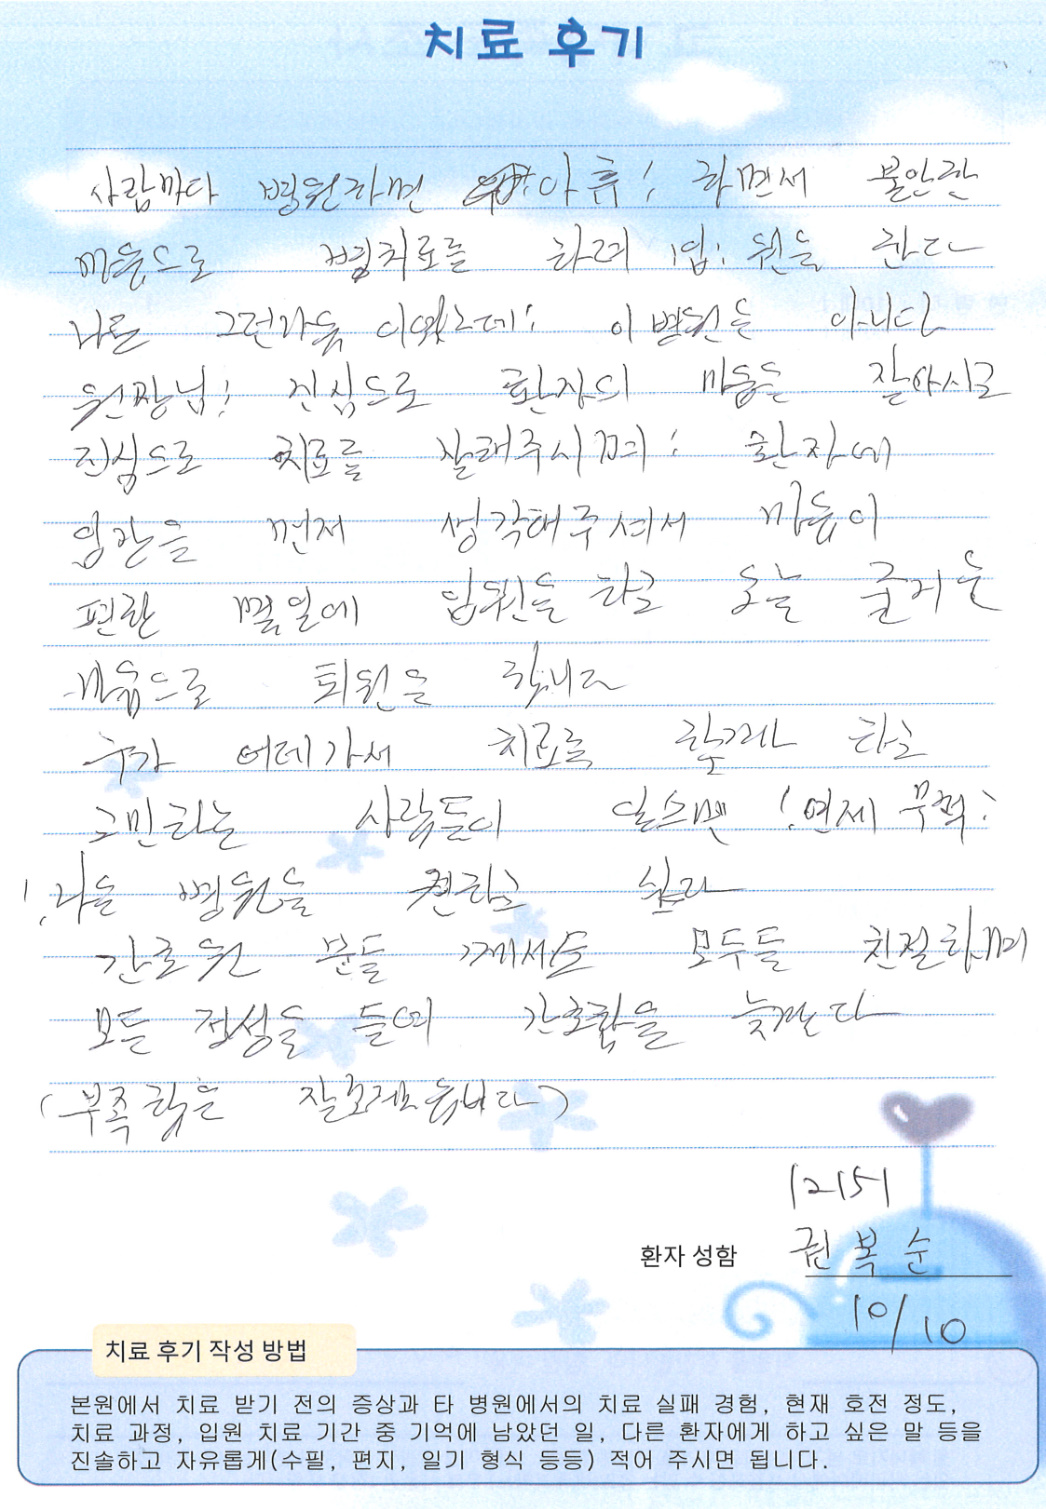 치료 후기
사람마다 병원하면 아휴! 하면서 불안한
마음으로 병치료를 하려 입: 원을 한다
나는 그런가 이였는데! 이 병원은 아니다
원장님! 진심으로 환자의 마음을 잘아시고
진심으로 치료를 잘해주시며! 환자에
입관을 먼저 생각해주셔서 마음이
편한 몇일에 입원을 하고 오늘 즐거운
마음으로 퇴원을 합니다
누가 어데가서 치료를 할까 하고
고민하는 사람들이 있스면 ! 언제 무척!
! 나는 병원을 권하고 싶다
간호원 분들 께서도 모두들 친절하며
모든 정성을 들여 간호함을 늦낀다
(부족함은 잘 읍니다)
12151
환자 성함 권복순
10/10
치료 후기 작성 방법
본원에서 치료 받기 전의 증상과 타 병원에서의 치료 실패 경험, 현재 호전 정도,
치료 과정, 입원 치료 기간 중 기억에 남았던 일, 다른 환자에게 하고 싶은 말 등을
진솔하고 자유롭게(수필, 편지, 일기 형식 등등) 적어 주시면 됩니다.